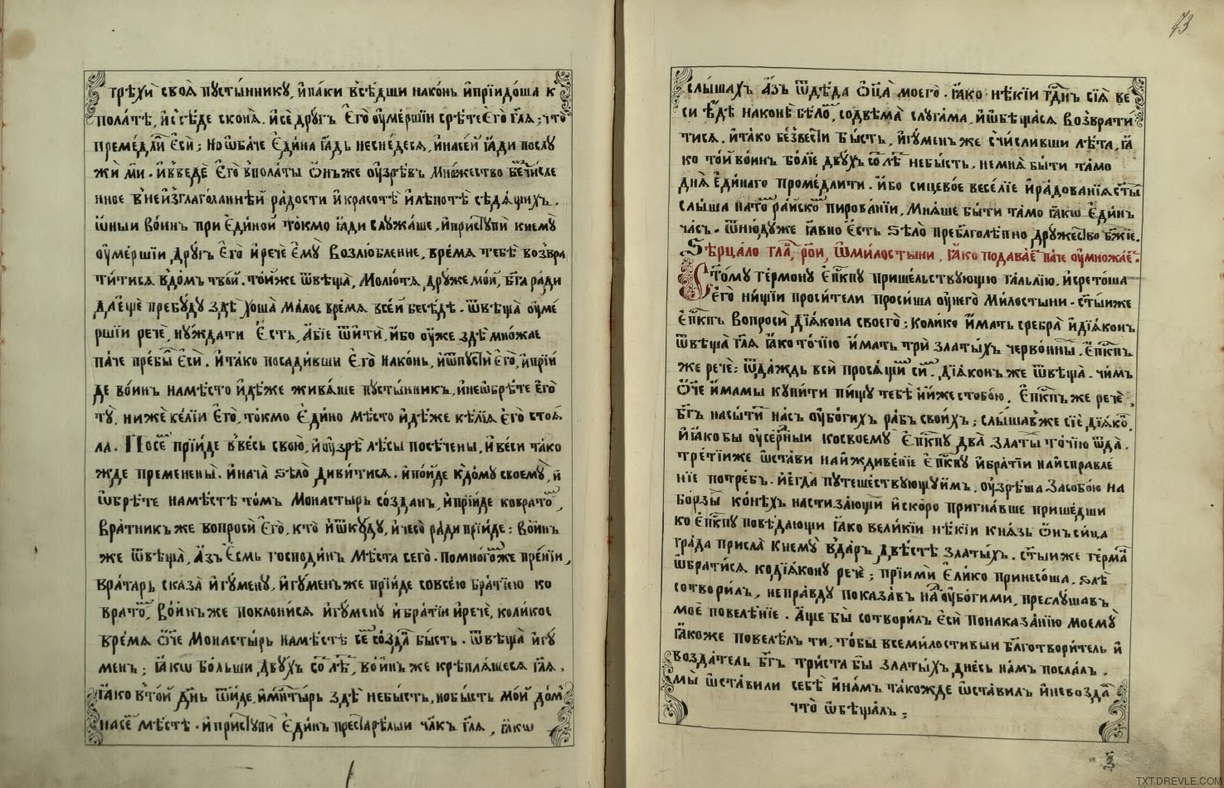 грѣхи своѧ пꙋстынникꙋ, и҆паки всѣдши наконь и҆прїидоша к
полатѣ, и҆ слѣде сконѧ. и҆се дрꙋгъ Є҆го ᲂу҆мершїи срѣте Є҆го гл҃ѧ; что
премедли Є҆си; Но ѡ҆баче Є҆дина ꙗ҆дь неснедесѧ, и҆насеи ꙗ҆ди послꙋ
жи ми. и҆ введе Є҆го вполаты Ѻ҆нъже ᲂу҆зрѣвъ Множество бе҃числе
нное внеи҆зглаголаннѣй радости и҆ красотѣ и҆лѣпотѣ сѣдѧщихъ.
ѡ҆ныи Во́инъ при Є҆диной токмо ꙗ҆ди слꙋжаше, и҆пристꙋпи кнемꙋ
ᲂу҆мершїи Дрꙋгъ Є҆го и҆рече Є҆мꙋ Возлюбленне, время тебѣ возвра
титисѧ вдомъ твой. тойже ѿвѣща, Молютѧ, дрꙋже мой, бг҃а ради
да еще пребꙋдꙋ здѣ хоща малое времѧ всей бесѣдѣ. ѿвѣща ᲂу҆ме
ршїи рече, нꙋждати Є҆сть, абїе ѿити. и҆бо ᲂу҆же здѣ мно́жае
па́че пребы Є҆си. и҆тако посадивши Є҆го наконь, и҆ѿпꙋсти Є҆го, и҆прїи
де воинъ намѣсто и҆дѣже живѧше пꙋстынникъ, и҆неѡбрѣте Є҆го
тꙋ, ниже келїи Є҆го, токмо Є҆дино Мѣсто и҆дѣже кѣлїѧ Є҆го стоѧ
ла. Посе прїиде квесь свою, и҆ᲂу҆зрѣ лѣсы посѣчены, и҆ веси тако
жде пременены. и҆нача ѕѣло дивитисѧ. и҆поиде кдомꙋ своемꙋ, и҆
ѡ҆брѣте намѣстѣ томъ Монастырь созданъ, и҆прїиде ковратѡ,
Вратникъ же вопроси Є҆го, кто и҆ѿкꙋдꙋ, и҆ чесо ради прїиде: воинъ
же ѿвѣща, Азъ Є҆смь господинъ Мѣста сего. помногоже пренїи,
вратарь сказа и҆гꙋменꙋ, и҆гꙋменъ же прїиде совсею братїею ко
врато, Воинъ же поклонисѧ и҆гꙋменꙋ и҆ братїи и҆рече, коликое
времѧ ѻ҆че Монастырь намѣстѣ се созда бысть. ѿвѣща и҆гꙋ
менъ; ꙗ҆кѡ больши двꙋхъ со лѣ, во́инъ же крѣплѧшесѧ гл҃ѧ,
ꙗ҆ко втой днь ѿиде, и҆мнтырь здѣ небысть, но бысть мой дом
насе мѣстѣ. и҆пристꙋпи Є҆динъ престарѣлыи чл҃къ гл҃ѧ, ꙗ҆кѡ
73
слышахъ азъ ѿдѣда Ѻ҆ц҃а моего. ꙗ҆ко нѣкїи гднъ сїѧ ве
си ѣде наконѣ бѣло, содвѣма слꙋгама, и҆ѡбѣщасѧ возврати
тисѧ. и҆тако безвести бысть, и҆гꙋменъ же счисливши лѣта, ꙗ҆
ко той воинъ болїе двꙋхъ со лѣ небысть. немнѧ быти тамо
Днѧ единаго промедлити. и҆бо сицевое веселїе и҆радованїѧ сты
слыша на то райско пированїи, Мнѧше быти тамо ꙗ҆кѡ Є҆динъ
часъ. ѿнюдꙋже ꙗ҆вно Є҆сть ѕѣло преблаголѣпно дрꙋжество бж҃їе.
Ѕѣрцало гла, рои, ѡ҆милостыни, ꙗ҆ко подавае паче ᲂу҆множае.
Стомꙋ Гермонꙋ Є҆пкпꙋ пришельствꙋющꙋ Галълїю, и҆сретоша
Є҆го нищїи просители просиша ᲂу҆него Милостыни. стыиже
Є҆пкпъ вопроси дїѧкона своего; колико и҆мать сребра и҆дїѧконъ
ѿвѣща гл҃ѧ ꙗ҆ко точїю и҆мать три златыхъ червонны. Є҆пкпъ
же рече; ѿдаждь всѝ просѧщи си. дїѧконъ же ѿвѣща. чимъ
Ѻ҆че и҆мамы кꙋпити пищꙋ тебѣ и҆иже стобою. Є҆пкпъ же рече.
Бг҃ъ насыти насъ ᲂу҆богихъ рабъ своихъ; слышавже сїе дїѧко,
и҆ꙗ҆ко бы ᲂу҆серныи косвоемꙋ Є҆пкпꙋ два златы точїю ѿда.
третїиже ѡ҆стави наиждивенїе Є҆пкпꙋ и҆братїи наисправле
нїе потребъ. и҆егда пꙋтешествꙋющꙋимъ, ᲂу҆зрѣша засобою на
борзы конѣхъ настизающїи и҆скоро пригнавше пришедши
ко Є҆пкпꙋ повѣдающи ꙗ҆ко великїи нѣкїи кнѧзь Ѻ҆нъсица
града присла кнемꙋ вдаръ двѣстѣ златыхъ. стыиже герма
ѡ҆братисѧ кодїѧконꙋ рече; прїими Є҆лико принесоша. ѕлѣ
сотворилъ, неправдꙋ показавъ на ᲂу҆богими, преслꙋшавъ
мое повелѣнїе. аще бы сотворилъ Є҆си понаказанїю моемꙋ
ꙗ҆коже повелѣлъ ти, чтобы всемилостивыи бл҃готворитель и҆
воздатель бг҃ъ триста бы златыхъ днесь намъ послалъ.
мы ѡ҆ставили себѣ и҆намъ такожде ѡ҆ставилъ и҆невозда
что ѿвѣщалъ.
TXT.DREVLE.COM